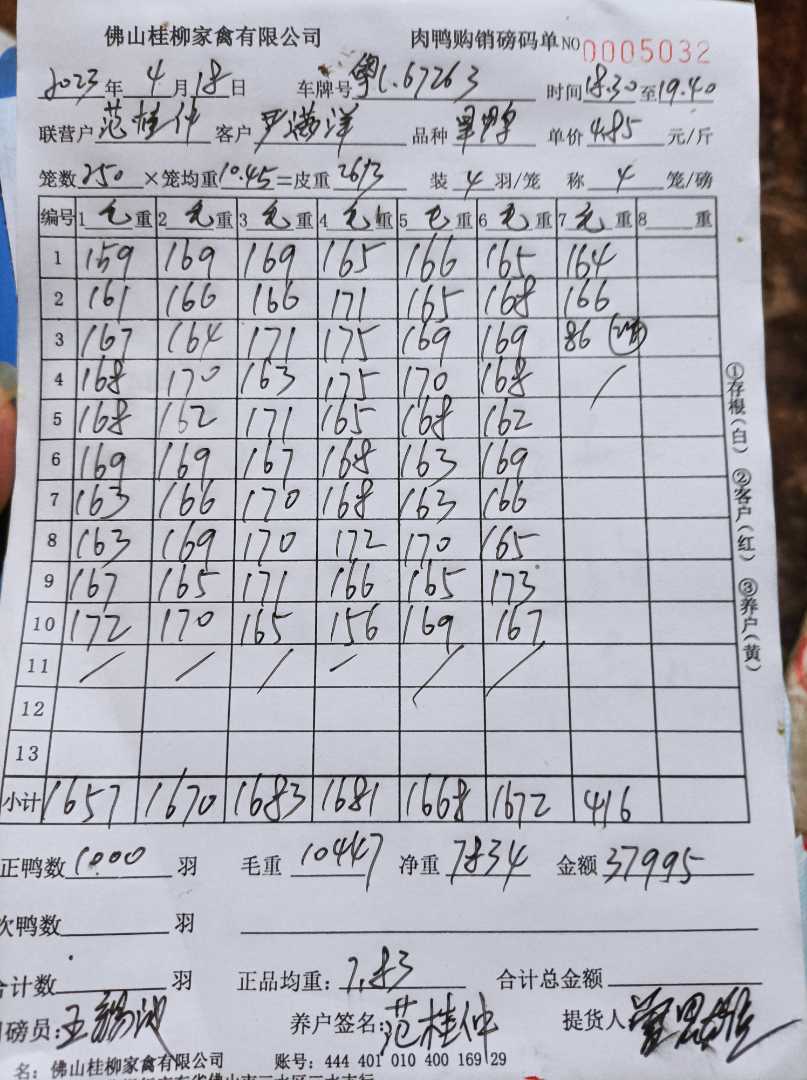 佛山桂柳家禽有限公司 肉鸭购销磅码单 NO 0005032
2023年 4月 18日 车牌号 粤L.67263 时间 18.30 至 19.40
联营户 范桂仲 客户 尹满洋 品种 单价 4.85 元/斤
笼数 250 ×笼均重 10.45 =皮重 2613 装 4 羽/笼 称 4 笼/磅
编号 1 毛 重 2 毛 重 3 毛 重 4 毛 重 5 毛 重 6 毛 重 7 毛 重 8 重
1 159 169 169 165 166 165 164
2 161 166 166 171 165 168 166
3 167 164 171 175 169 169 86
4 168 170 163 175 170 168 /
5 168 162 171 165 168 162
6 169 169 167 168 163 169
7 163 166 170 168 163 166
8 163 169 170 172 170 165
9 167 165 171 166 165 173
10 172 170 165 156 169 167
11 / / / / / /
12
13
小计 1657 1670 1683 1681 1668 1672 416
正鸭数 1000 羽 毛重 10447 净重 7834 金额 37995
次鸭数 羽
合计数 羽 正品均重: 7.83 合计总金额
磅员: 养户签名: 范桂仲 提货人:
名: 佛山桂柳家禽有限公司 账号: 444 401 010 400 169 29
①存根(白) ②客户(红) ③养户(黄)